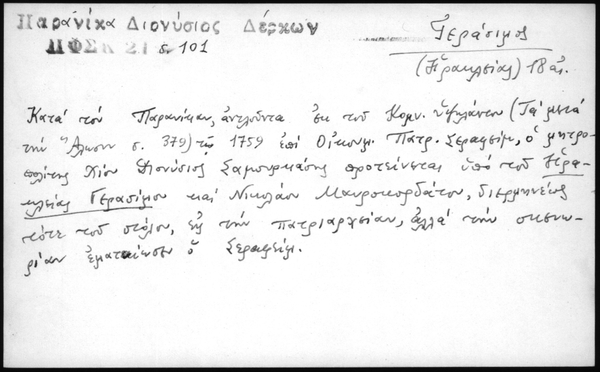 Παρανίκα Διονύσιος Δέρκων
ΗΦΣΚ 21 σ. 101
Γεράσιμος
(Ἡρακλείας) 18 αἰ.
Κατά τόν Παρανίκαν, ἀντλοῦντα ἐκ τοῦ Κομν. Ὑψηλάντου (Τά μετά
τήν Ἅλωσιν σ. 379) τῷ 1759 ἐπί Οἰκουμ. Πατρ. Σεραφείμ, ὁ μητρο-
πολίτης Χίου Διονύσιος προτείνεται ὑπό τοῦ Ἡρα-
κλείας Γερασίμου καί Νικολάου Μαυροκορδάτου, διερμηνέως
τότε τοῦ στόλου, εἰς τήν πατριαρχείαν, ἀλλά τήν σκευω-
ρίαν ἐματαίωσεν ὁ Σεραφείμ.